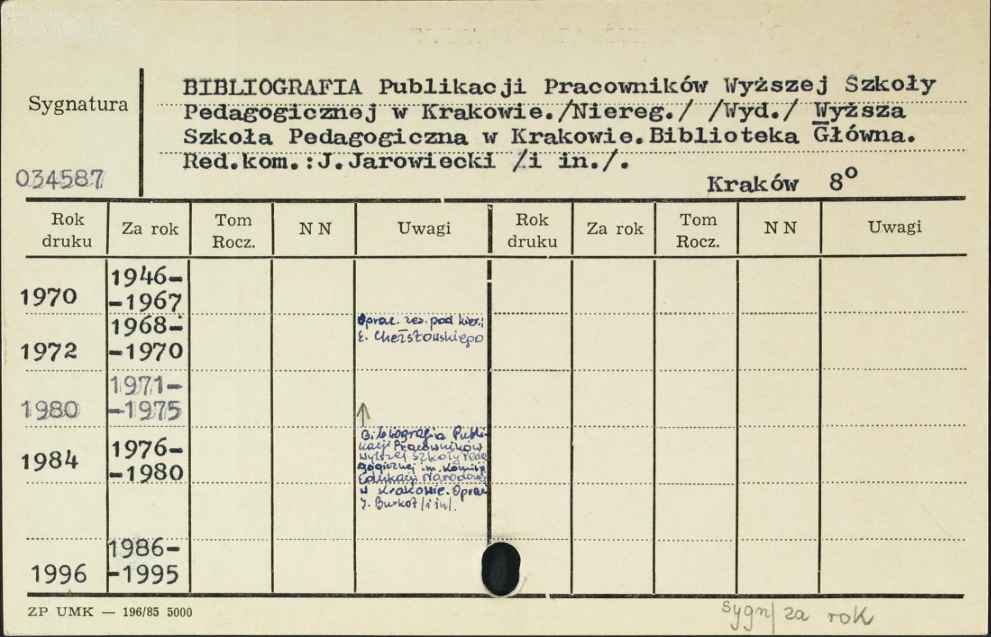 BIBLIOGRAFIA Publikacji Pracowników Wyższej Szkoły
Pedagogicznej w Krakowie./Niereg./ /Wyd./ Wyższa
Szkoła Pedagogiczna w Krakowie.Biblioteka Główna.
Red.kom.:J.Jarowiecki /i in./.
Kraków 8°
Sygnatura
034587
Rok druku Za rok Tom Rocz. N N Uwagi Rok druku Za rok Tom Rocz. N N Uwagi
1970 1946-
-1967
1972 1968-
-1970
Oprac. zes. pod kier.:
E. Chełstowskiego
1980 1971-
-1975
1984 1976-
-1980
Bibliografia Publi-
kacji Pracowników
Wyższej Szkoły Peda
gogicznej im. Komisji
Edukacji Narodowej
w Krakowie. Oprac
J. Burkot /i in/.
1996 1986-
-1995
ZP UMK — 196/85 5000
sygn/ za rok